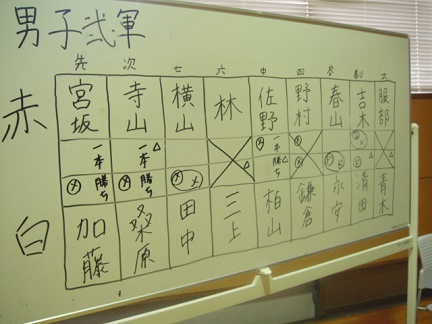 男子弐軍
先 次 七 六 中 四 参 副 大
赤 宮坂 寺山 横山 林 佐野 野村 春山 吉木 服部
一本勝ち 一本勝ち 一本勝ち
白 加藤 桑原 田中 三上 柏山 鎌倉 永安 清田 青木